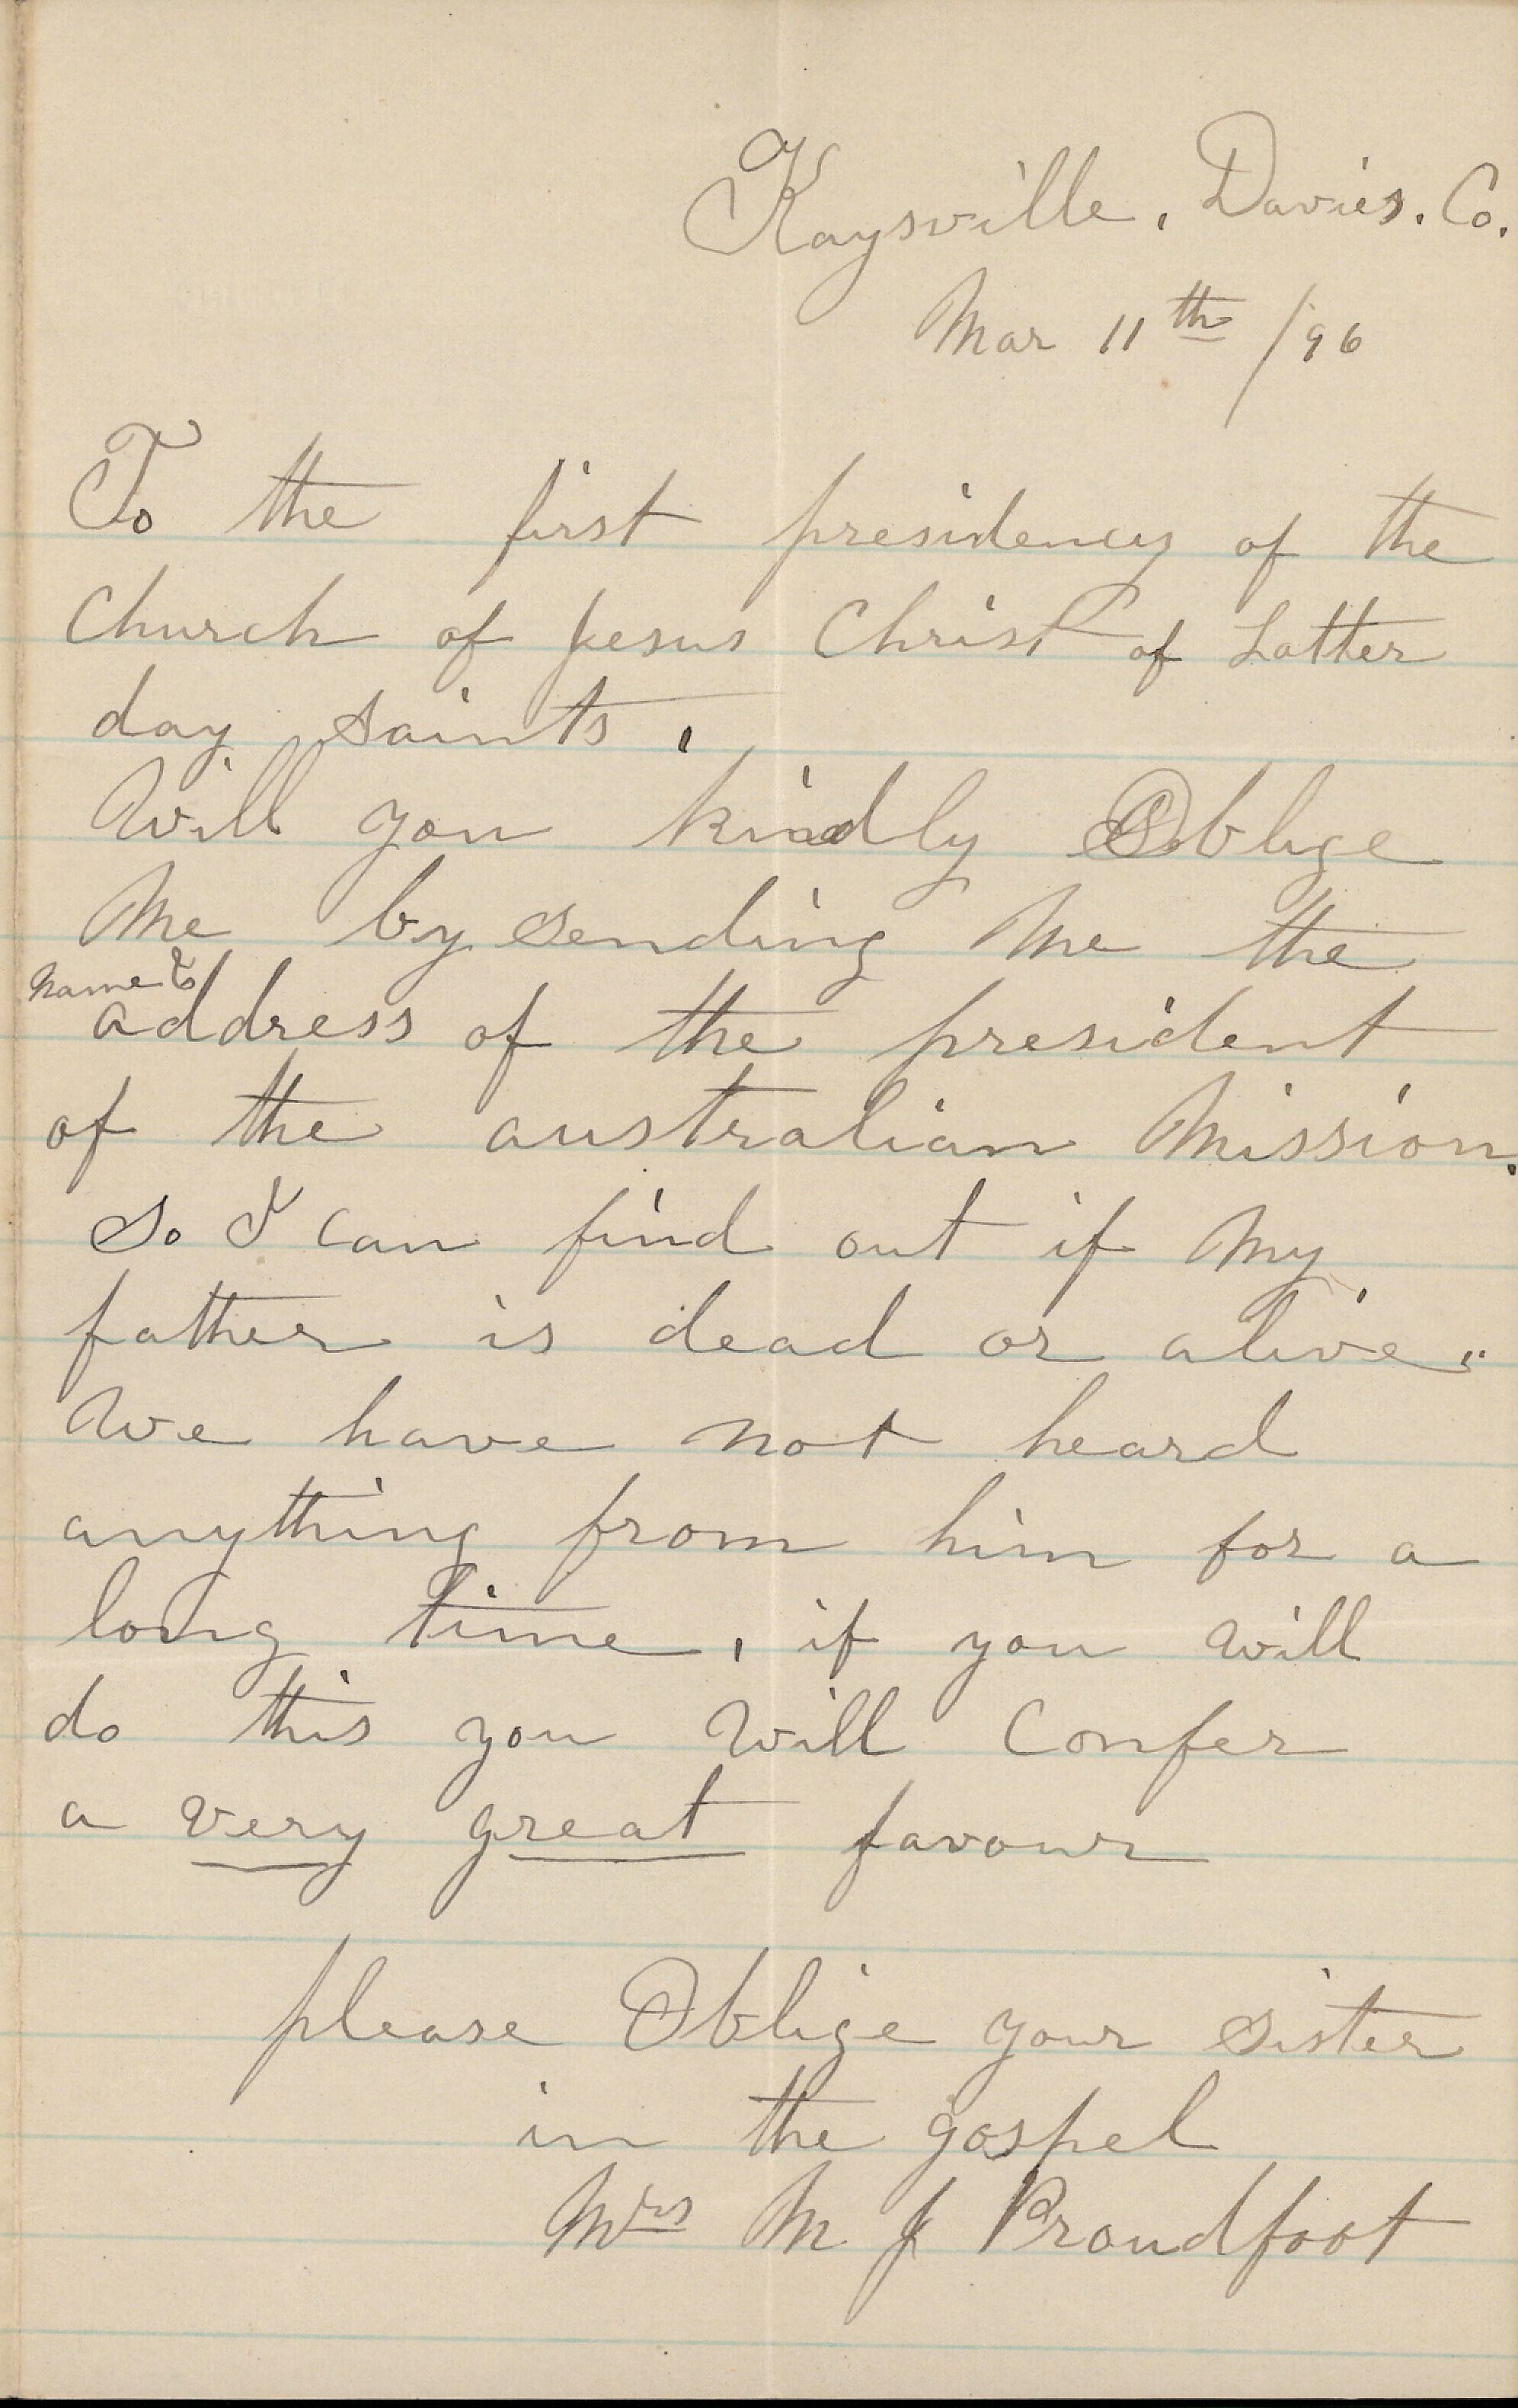 Kaysville, Davies. Co.
Mar 11th /96
To the first presidency of the
Church of Jesus Christ of Latter
day saints,
Will you kindly Oblige
Me by sending Me the
name &
address of the president
of the australian Mission.
So I can find out if My
father is dead or alive..
We have not heard
anything from him for a
long time, if you will
do this you will Confer
a very great favour
please Oblige your sister
in the gospel
Mrs M J Proudfoot